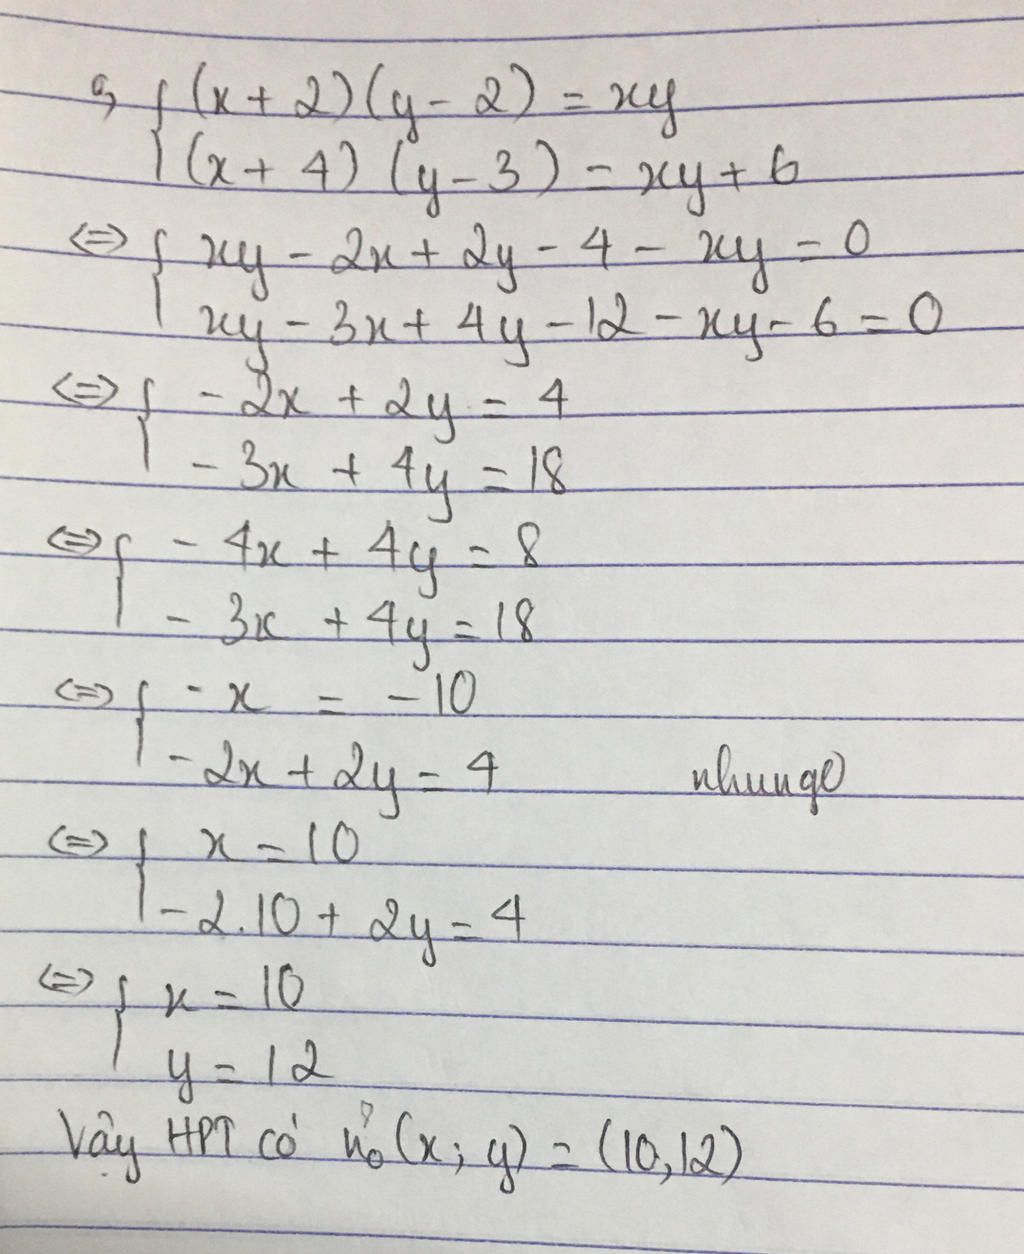 c, { (x + 2)(y - 2) = xy
(x + 4) (y - 3) = xy + 6
<=> { xy - 2x + 2y - 4 - xy = 0
xy - 3x + 4y - 12 - xy - 6 = 0
<=> { - 2x + 2y = 4
- 3x + 4y = 18
<=> { - 4x + 4y = 8
- 3x + 4y = 18
<=> { - x = - 10
- 2x + 2y = 4 nhungo
<=> { x = 10
- 2.10 + 2y = 4
<=> { x = 10
y = 12
Vậy HPT có n̉o (x; y) = (10,12)